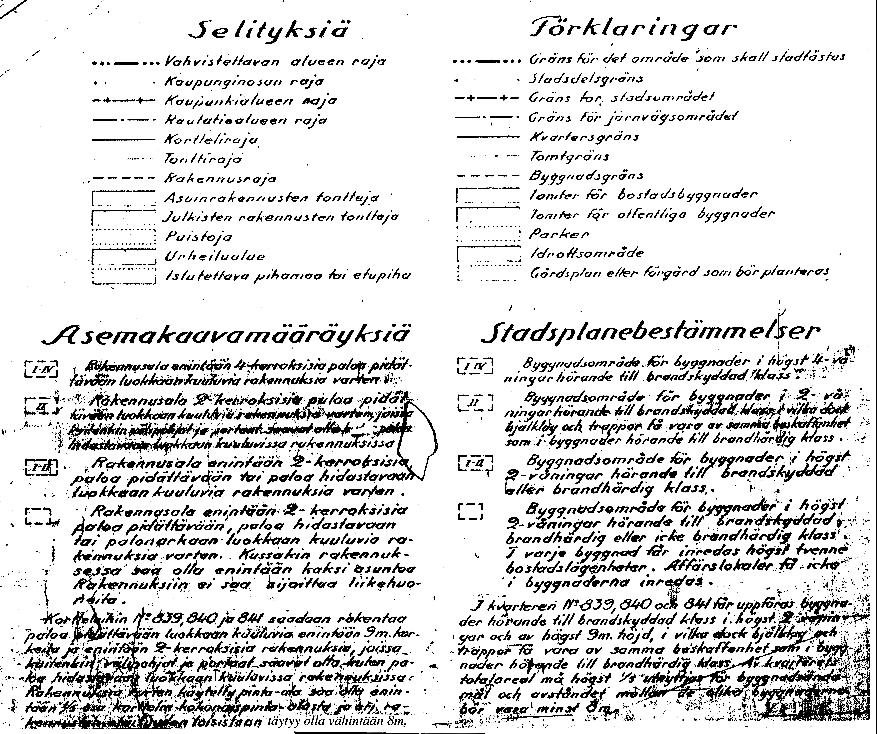 Selityksiä
Vahvistettavan alueen raja
Kaupunginosan raja
Kaupunkialueen raja
Rautatiealueen raja
Kortteliraja
Tonttiraja
Rakennusraja
Asuinrakennusten tontteja
Julkisten rakennusten tontteja
Puistoja
Urheilualue
Istutettava pihamaa tai etupiha
Asemakaavamääräyksiä
I-IV Rakennusala enintään 4-kerroksisia paloa pidät-
tävään luokkaan kuuluvia rakennuksia varten.
II Rakennusala 2-kerroksisia paloa pidät-
tävään luokkaan kuuluvia rakennuksia varten, joissa
kuitenkin välipohjat ja portaat saavat olla
hidastavaan luokkaan kuuluvissa rakennuksissa
I-II Rakennusala enintään 2-kerroksisia
paloa pidättävään tai paloa hidastavaan
luokkaan kuuluvia rakennuksia varten.
Rakennusala enintään 2-kerroksisia
paloa pidättävään, paloa hidastavaan
tai palonarkaan luokkaan kuuluvia ra-
kennuksia varten. Kussakin rakennuk-
sessa saa olla enintään kaksi asuntoa
Rakennuksiin ei saa sijoittaa liikehuo-
neita.
Kortteleihin Nº 839, 840 ja 841 saadaan rakentaa
paloa pidättävään luokkaan kuuluvia enintään 9m. kor-
keita ja enintään 2-kerroksisia rakennuksia, joissa
kuitenkin välipohjat ja portaat saavat olla kuten pa-
loa hidastavaan luokkaan kuuluvissa rakennuksissa.
Rakennusta varten käytetty pinta-ala saa olla enin-
tään 1/3 osa korttelin kokonaispinta-alasta ja eri ra-
kennusten toisistaan täytyy olla vähintään 8m,
Förklaringar
Gräns för det område som skall stadfästas
Stadsdelsgräns
Gräns för stadsområdet
Gräns för järnvägsområdet
Kvartersgräns
Tomtgräns
Byggnadsgräns
Tomter för bostadsbyggnader
Tomter för offentliga byggnader
Parker
Idrottsområde
Gårdsplan eller förgård som bör planteras
Stadsplanebestämmelser
I-IV Byggnadsområde för byggnader i högst 4-vå-
ningar hörande till brandskyddad klass.
II Byggnadsområde för byggnader i 2-vå-
ningar hörande till brandskyddad klass, i vilka dock
bjälklag och trappor få vara av samma beskaffenhet
som i byggnader hörande till brandhärdig klass.
I-II Byggnadsområde för byggnader i högst
2-våningar hörande till brandskyddad
eller brandhärdig klass.
Byggnadsområde för byggnader i högst
2-våningar hörande till brandskyddad,
brandhärdig eller icke brandhärdig klass.
I varje byggnad får inredas högst tvenne
bostadslägenheter. Affärslokaler få icke
i byggnaderna inredas.
I kvarteren Nº 839, 840 och 841 får uppföras byggna-
der hörande till brandskyddad klass i högst 2 vånin-
gar och av högst 9m. höjd, i vilka dock bjälklag och
trappor få vara av samma beskaffenhet som i bygg-
nader hörande till brandhärdig klass. Av kvarterets
totalareal må högst 1/3 utnyttjas för byggnadsända-
mål och avståndet mellan de olika byggnaderna
bör vara minst 8m.